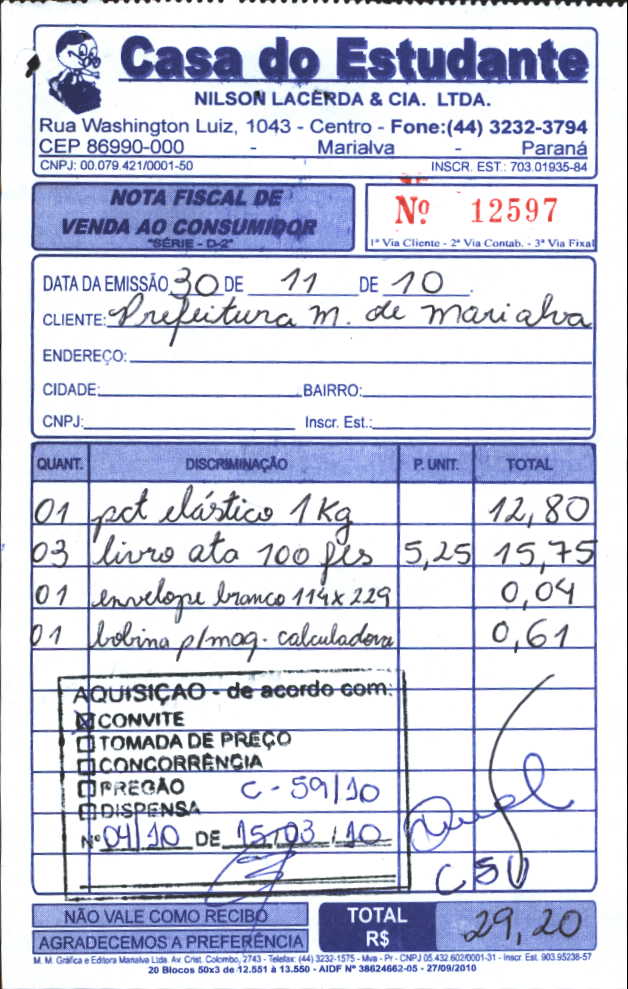 Casa do Estudante
NILSON LACERDA & CIA. LTDA.
Rua Washington Luiz, 1043 - Centro - Fone:(44) 3232-3794
CEP 86990-000 - Marialva - Paraná
CNPJ: 00.079.421/0001-50 INSCR. EST.: 703.01935-84
NOTA FISCAL DE
VENDA AO CONSUMIDOR
"SÉRIE - D-2"
Nº 12597
1ª Via Cliente - 2ª Via Contab. - 3ª Via Fixa
DATA DA EMISSÃO 30 DE 11 DE 10.
CLIENTE: Prefeitura M. de Marialva
ENDEREÇO:
CIDADE: BAIRRO:
CNPJ: Inscr. Est.:
QUANT. DISCRIMINAÇÃO P. UNIT. TOTAL
01 pct elástico 1 Kg 12,80
03 livro ata 100 fls 5,25 15,75
01 envelope branco 114x229 0,04
01 bobina p/maq. calculadora 0,61
AQUISIÇÃO - de acordo com:
CONVITE
TOMADA DE PREÇO
CONCORRÊNCIA
PREGÃO C-59/10
DISPENSA
Nº 04/10 DE 15/03/10
CSU
NÃO VALE COMO RECIBO
AGRADECEMOS A PREFERÊNCIA
TOTAL
R$ 29,20
M. M. Gráfica e Editora Marialva Ltda. Av. Crist. Colombo, 2743 - Telefax: (44) 3232-1575 - Mva - Pr - CNPJ 05.432.602/0001-31 - Inscr. Est. 903.95238-57
20 Blocos 50x3 de 12.551 à 13.550 - AIDF Nº 38624662-05 - 27/09/2010